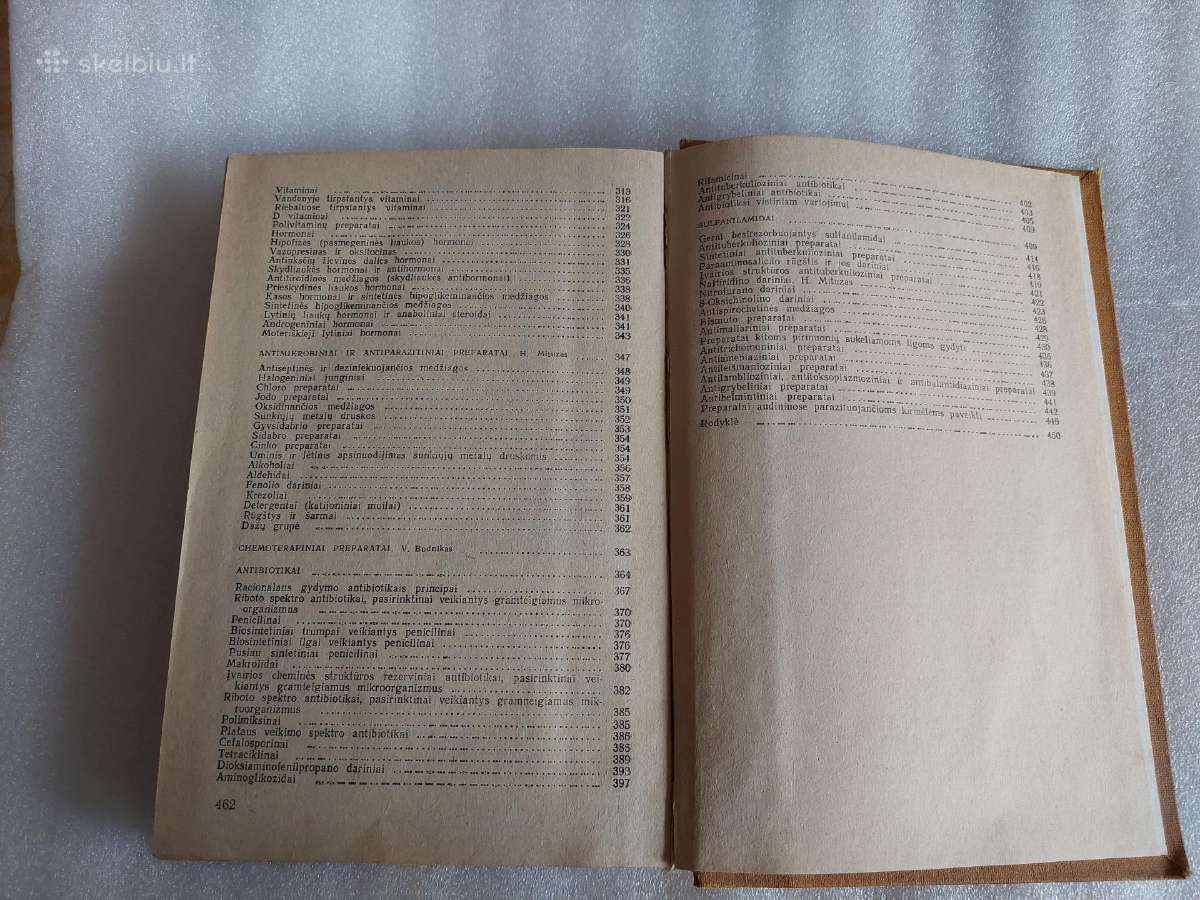 skelbiu.lt
Vitaminai 313
Vandenyje tirpstantys vitaminai 316
Riebaluose tirpstantys vitaminai 321
D vitaminai 322
Polivitaminų preparatai 324
Hormonai 326
Hipofizės (pasmegeninės liaukos) hormonai 328
Vazopresinas ir oksitocinas 330
Antinksčių žievinės dalies hormonai 331
Skydliaukės hormonai ir antihormonai 335
Antitiroidinės medžiagos (skydliaukės antihormonai) 336
Prieskydinės liaukos hormonai 338
Kasos hormonai ir sintetinės hipoglikeminančios medžiagos 338
Sintetinės hipoglikeminančios medžiagos 340
Lytinių liaukų hormonai ir anaboliniai steroidai 341
Androgeniniai hormonai 341
Moteriškieji lytiniai hormonai 343
ANTIMIKROBINIAI IR ANTIPARAZITINIAI PREPARATAI. H. Mituzas 347
Antiseptinės ir dezinfekuojančios medžiagos 348
Halogeniniai junginiai 349
Chloro preparatai 349
Jodo preparatai 350
Oksidinančios medžiagos 351
Sunkiųjų metalų druskos 352
Gyvsidabrio preparatai 353
Sidabro preparatai 354
Cinko preparatai 354
Ūminis ir lėtinis apsinuodijimas sunkiųjų metalų druskomis 354
Alkoholiai 356
Aldehidai 357
Fenolio dariniai 358
Krezoliai 359
Detergentai (katijoniniai muilai) 361
Rūgštys ir šarmai 361
Dažų grupė 362
CHEMOTERAPINIAI PREPARATAI. V. Budnikas 363
ANTIBIOTIKAI 364
Racionalaus gydymo antibiotikais principai 367
Riboto spektro antibiotikai, pasirinktinai veikiantys gramteigiamus mikro-
organizmus 370
Penicilinai 370
Biosintetiniai trumpai veikiantys penicilinai 376
Biosintetiniai ilgai veikiantys penicilinai 376
Pusiau sintetiniai penicilinai 377
Makrolidai 380
Įvairios cheminės struktūros rezerviniai antibiotikai, pasirinktinai vei-
kiantys gramteigiamus mikroorganizmus 382
Riboto spektro antibiotikai, pasirinktinai veikiantys gramneigiamus mik-
roorganizmus 385
Polimiksinai 385
Plataus veikimo spektro antibiotikai 386
Cefalosporinai 386
Tetraciklinai 389
Dioksiaminofenilpropano dariniai 393
Aminoglikozidai 397
462
Rifamicinai 402
Antituberkulioziniai antibiotikai 403
Antigrybeliniai antibiotikai 405
Antibiotikai vietiniam vartojimui 409
SULFANILAMIDAI 409
Gerai besirezorbuojantys sulfanilamidai 414
Antituberkulioziniai preparatai 416
Sintetiniai antituberkulioziniai preparatai 418
Paraaminosalicilo rūgštis ir jos dariniai 419
Įvairios struktūros antituberkulioziniai preparatai 421
Naftiridino dariniai. H. Mituzas 422
Nitrofurano dariniai 423
8-Oksichinolino dariniai 426
Antispirochetinės medžiagos 428
Bismuto preparatai 429
Antimaliariniai preparatai 430
Preparatai kitoms pirmuonių sukeliamoms ligoms gydyti 436
Antitrichomoniniai preparatai 436
Antiamebiaziniai preparatai 437
Antileišmanioziniai preparatai 438
Antilamblioziniai, antitoksoplazmoziniai ir antibalantidiaziniai preparatai 439
Antigrybeliniai preparatai 441
Antihelmintiniai preparatai 442
Preparatai audiniuose parazituojančioms kirmėlėms paveikti 448
Rodyklė 450